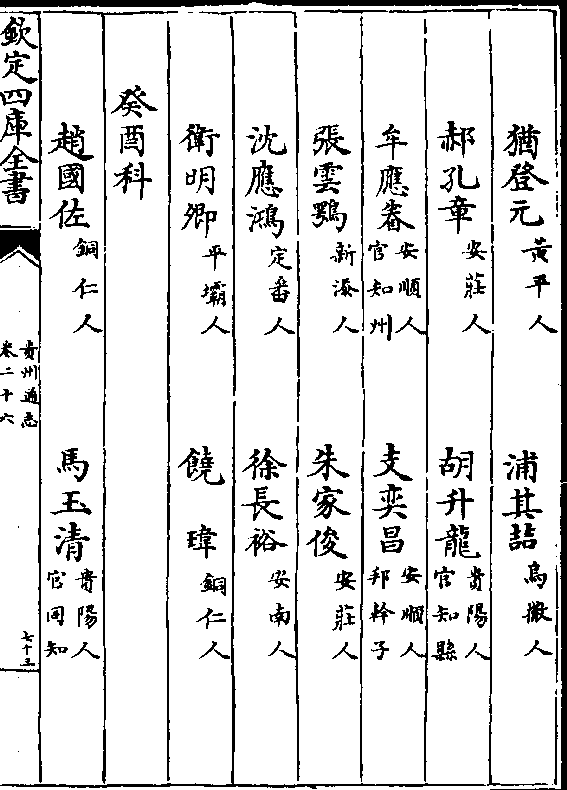 猶登元黃平人 浦其喆烏撒人
郝孔章安莊人 胡升龍貴陽人官知縣
牟應眷安順人官知州 支奕昌安順人邦幹子
張雲鶚新添人 朱家俊安莊人
沈應鴻定番人 徐長裕安南人
衛明卿平壩人 饒瑋銅仁人
癸酉科
趙國佐銅仁人 馬玉清貴陽人官同知
欽定四庫全書 貴州通志卷二十六 七十三